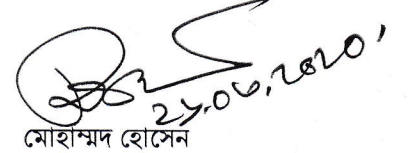 ২১.০৬.২০২০
মোহাম্মদ হোসেন